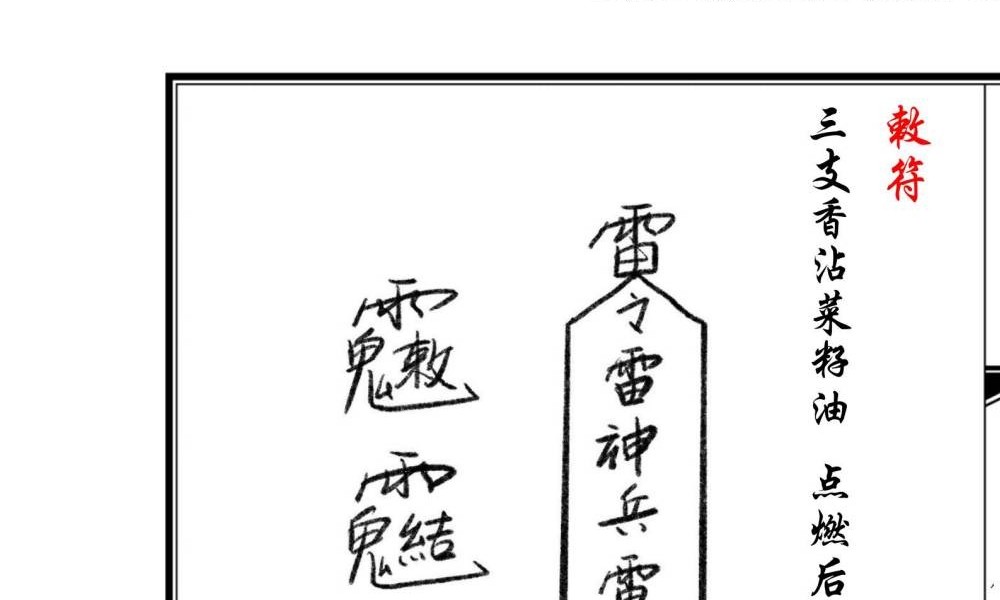 敕符
三支香沾菜籽油 点燃后
雷令雷神兵雷